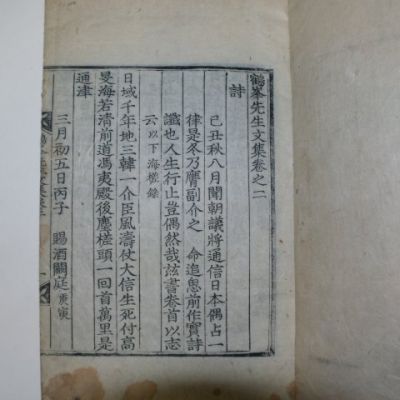 鶴峯先生文集卷之二
詩
己丑秋八月聞朝議將通信日本偶占一
律是冬乃膺副介之 命追思前作實詩
讖也人生行止豈偶然哉玆書卷首以志
云以下海槎錄
日域千年地三韓一介臣風濤仗大信生死付高
旻海若清前道馮夷殿後塵槎頭一回首萬里是
通津
三月初五日丙子 賜酒闕庭庚寅